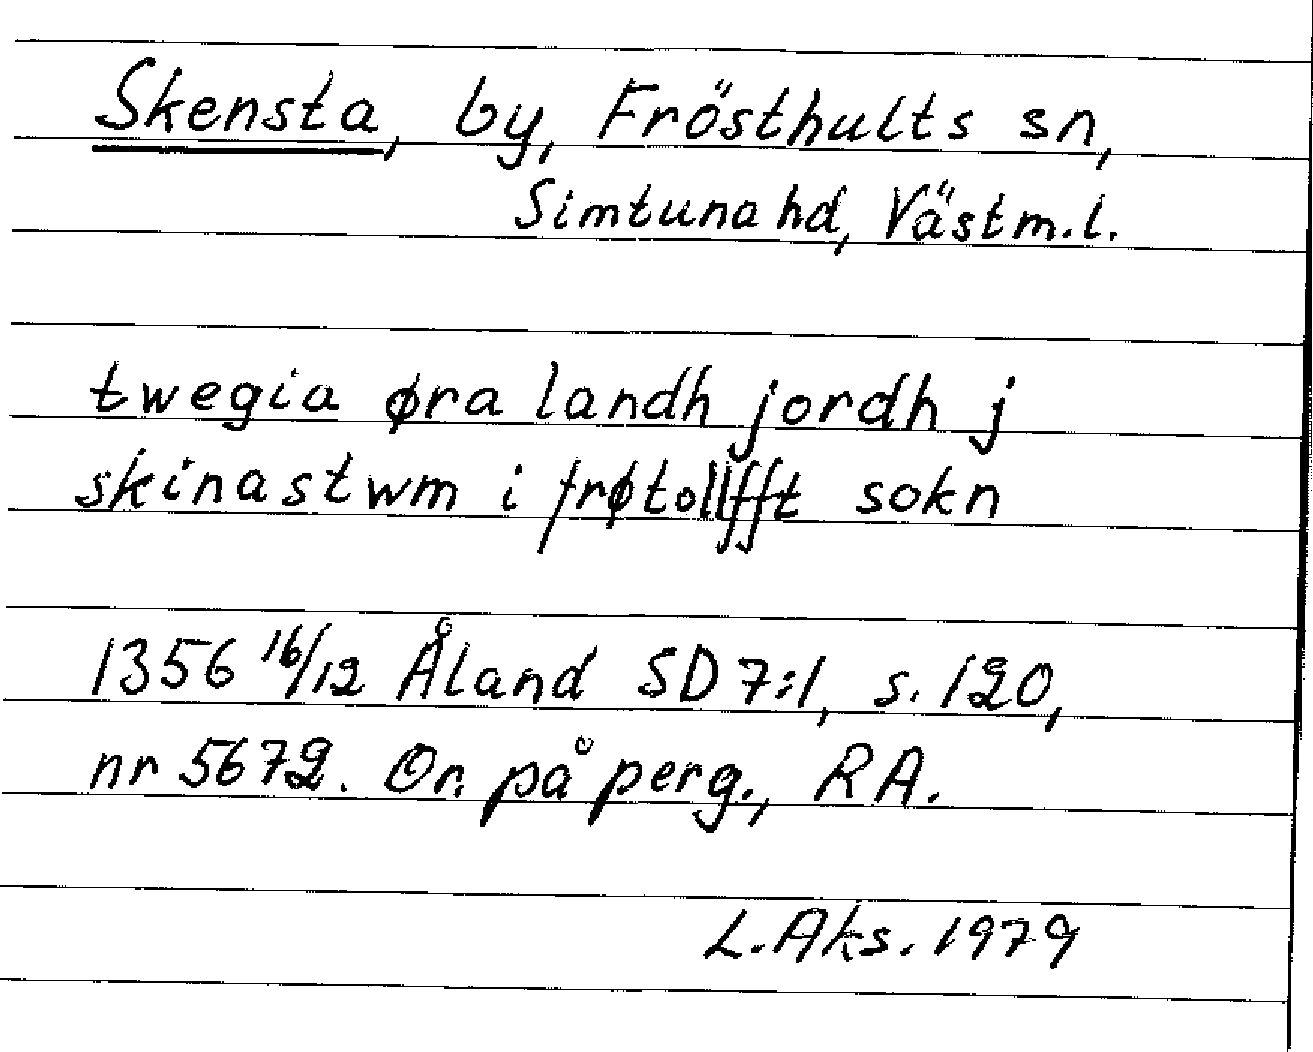 Skensta, by, Frösthults sn,
Simtuna hd, Västm.l.
twegia øra landh jordh j
skinastwm i frøtollfft sokn
1356 16/12 Åland SD 7:1, s. 120,
nr 5672. Or. på perg., RA.
L. Aks. 1979